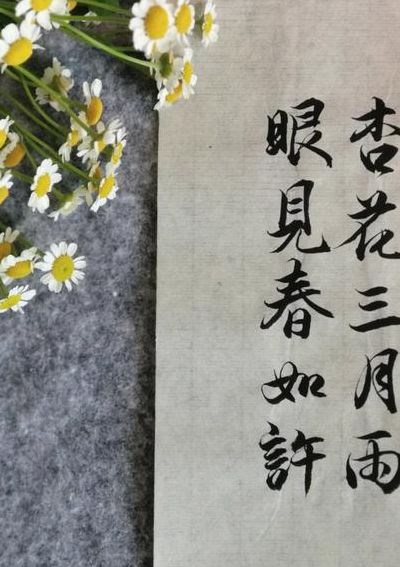 杏花三月雨
眼見春如許